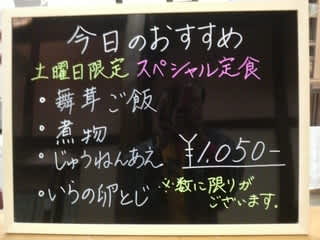 今日のおすすめ
土曜日限定 スペシャル定食
・舞茸ご飯
・煮物
・じゅうねんあえ
¥1.050-
・いらの卵とじ
※数に限りが
ございます.